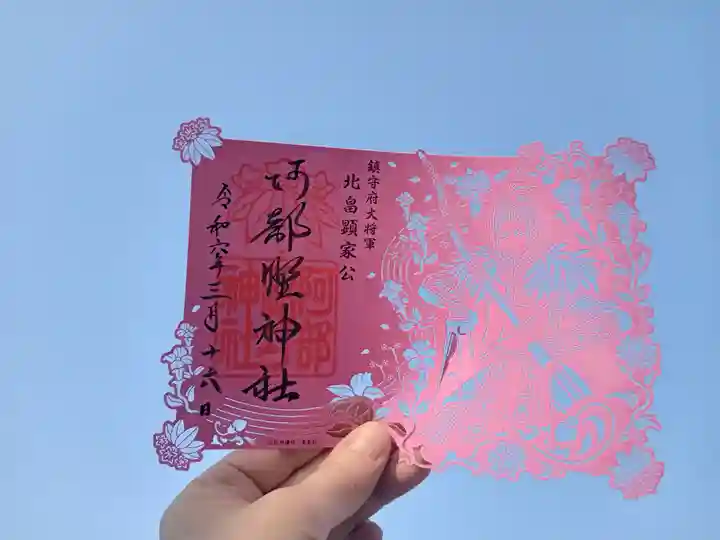 鎮守府大将軍
北畠顕家公
阿部野神社
令和六年三月十六日